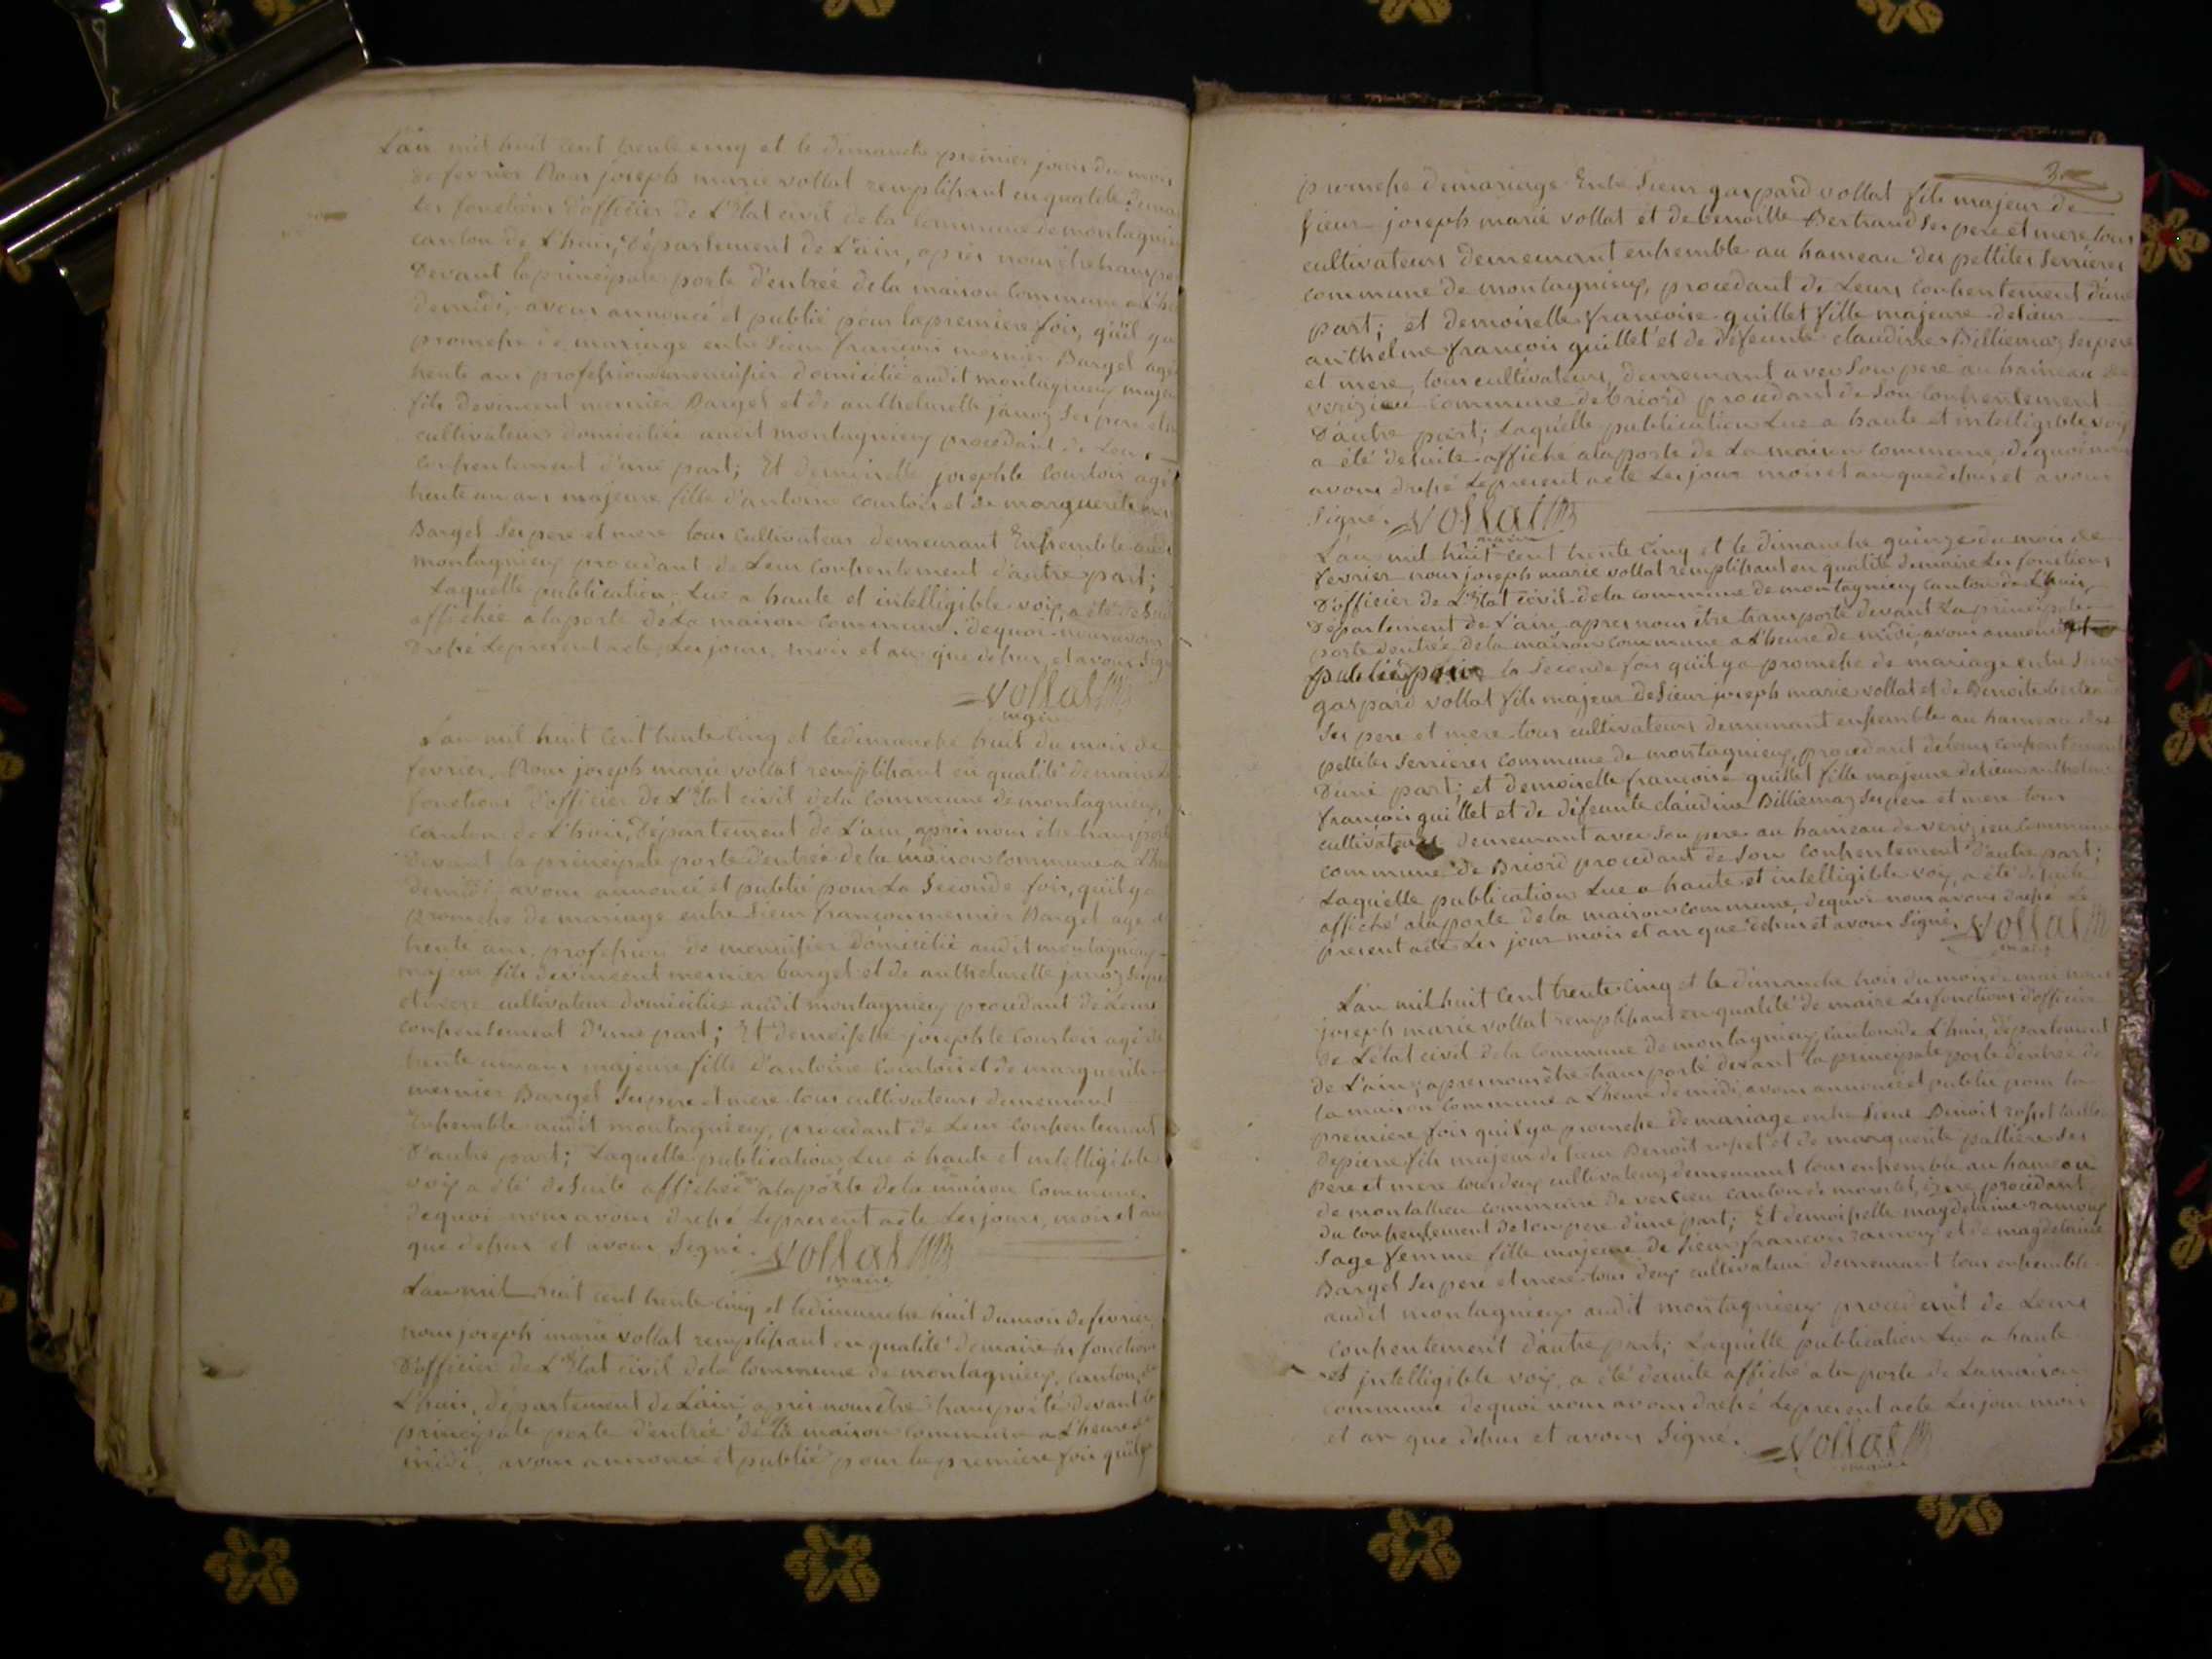 L'an mil huit cent trente cinq et le dimanche premier jour du mois
de fevrier Nous joseph marie vollat remplihant en qualité de mai
les fonctions d'officier de L'Etat civil de la commune de montagnieu
canton de L'huis, Département de L'ain, après nous être transpor
Devant la principale porte d'entrée de la maison commune a L'heu
de midi, avons annoncé et publié pour la premiere fois, qu'il ya
promehe de mariage entre Sieur françois meunier Bargel agé
trente ans profehion de menuisier domicilié audit montagnieu majeur
fils de vincent meunier Bargel et de anthelmette janoz Ses pere et
cultivateurs domiciliés audit montagnieu procedant de Leurs
conhentement d'une part; Et demoiselle josephte Courtois agé
trente un ans majeure fille d'antoine Courtois et de marguerite meu
Bargel Ses pere et mere tous cultivateurs demeurant Enhemble audi
montagnieu procedant de Leur conhentement d'autre part;
Laquelle publication, Lue a haute et intelligible voix, a été de Suite
affichée a la porte de La maison commune. de quoi nous avons
Drehé Le present acte, Les jours, mois et an que dehus, et avons Sign
Vollat
maire
L'an mil huit cent trente cinq et le dimanche huit du mois de
fevrier. Nous joseph marie vollat remplihant en qualité de maire Les
fonctions d'officier de L'Etat civil de la commune de montagnieu,
canton de L'huis, Département de L'ain, après nous être transporté
Devant la principale porte d'entrée de la maison commune a L'heu
de midi, avons annoncé et publié pour La Seconde fois, qu'il ya
promehe de mariage entre Sieur françois meunier Bargel agé de
trente ans, profehion de menuisier domicilié audit montagnieu
majeur fils de vincent meunier bargel et de anthelmette janoz Ses pere
et mere cultivateur domiciliés audit montagnieu procedant de Leurs
conhentement d'une part; Et demoiselle josephte Courtois agé de
trente un ans majeure fille d'antoine Courtois et de marguerite
meunier Bargel Ses pere et mere tous cultivateurs demeurant
Enhemble audit montagnieu, procedant de Leur conhentement
D'autre part; Laquelle publication Lue à haute et intelligible
voix a été de Suite affichée a la porte de la maison Commune.
de quoi nous avons drehé Le present acte Les jours, mois et an
que dehus et avons Signé. Vollat
maire
L'an mil huit cent trente cinq et le dimanche huit du mois de fevrier
nous joseph marie vollat remplihant en qualité de maire les fonctions
D'officier de L'Etat civil de la Commune de montagnieu, canton de
L'huis, département de L'ain, après nous être transporté devant la
principale porte d'entrée de la maison commune a L'heure de
midi, avons annoncé et publié pour la premiere fois qu'il ya
3
promehe de mariage Entre Sieur gaspard vollat fils majeur de
Sieur joseph marie vollat et de benoitte Bertrand Ses pere et mere tous
cultivateurs demeurant enhemble au hameau des pettites Serrieres
commune de montagnieu, procedant de Leurs conhentement d'une
part; et demoiselle françoise guillet fille majeure de Sieur
anthelme françois guillet et de défeunte claudine Billiemaz Ses pere
et mere, tous cultivateurs, demeurant avec Son pere au hameau de
verizieu commune de briord procedant de Son conhentement
D'autre part; Laquelle publication Lue a haute et intelligible voix
a été de suite affiché a la porte de La maison commune, de quoi nous
avons drehé Le present acte Les jour mois et an que dehus et avons
Signé. Vollat
maire
L'an mil huit cent trente cinq et le dimanche quinze du mois de
fevrier nous joseph marie vollat remplihant en qualité de maire Les fonctions
D'officier de L'Etat civil de la commune de montagnieu canton de L'huis
Département de L'ain après nous être transporté devant La principale
porte d'entrée de la maison commune a L'heure de midi, avons annoncé et
publié pour la Seconde fois qu'il ya promehe de mariage entre Sieur
gaspard vollat fils majeur de Sieur joseph marie vollat et de Benoite bertrand
Ses pere et mere tous cultivateurs demeurant enhemble au hameau des
pettites Serrieres commune de montagnieu, procedant de Leurs conhentement
D'une part; et demoiselle françoise guillet fille majeure de Sieur anthelme
françois guillet et de défeunte claudine Billiemaz Ses pere et mere tous
cultivateurs demeurant avec Son pere au hameau de verizieu commune
commune de Briord procedant de Son conhentement d'autre part;
Laquelle publication Lue a haute et intelligible voix, a été de Suite
affiché a la porte de la maison commune, de quoi nous avons drehé Le
present acte Les jour mois et an que dehus et avons Signé. Vollat
maire
L'an mil huit cent trente cinq et le dimanche trois du mois de mai nous
joseph marie vollat remplihant en qualité de maire Les fonctions d'officier
de L'état civil de la commune de montagnieu, canton de L'huis, département
de L'ain, apres nous être transporté devant la principale porte d'entrée de
la maison commune a L'heure de midi, avons annoncé et publié pour la
premiere fois qu'il ya promehe de mariage entre Sieur Benoit rohet taille
de pierre fils majeur de Sieur Benoit rohet et de marguerite pattiere Ses
pere et mere tous deux cultivateurs, demeurant tous enhemble au hameau
de montallieu commune de vercieu canton de morestel, izere, procedant
du conhentement de Son pere d'une part; Et demoiselle magdelaine ramoux
Sage femme fille majeure de Sieur françois ramoux et de magdelaine
Bargel Ses pere et mere tous deux cultivateur demeurant tous enhemble
audit montagnieu audit montagnieu procedant de Leurs
conhentement d'autre part; Laquelle publication Lue a haute
et intelligible voix, a été de suite affiché a la porte de La maison
commune de quoi nous avons drehé Le present acte Les jour mois
et an que dehus et avons Signé. Vollat
maire